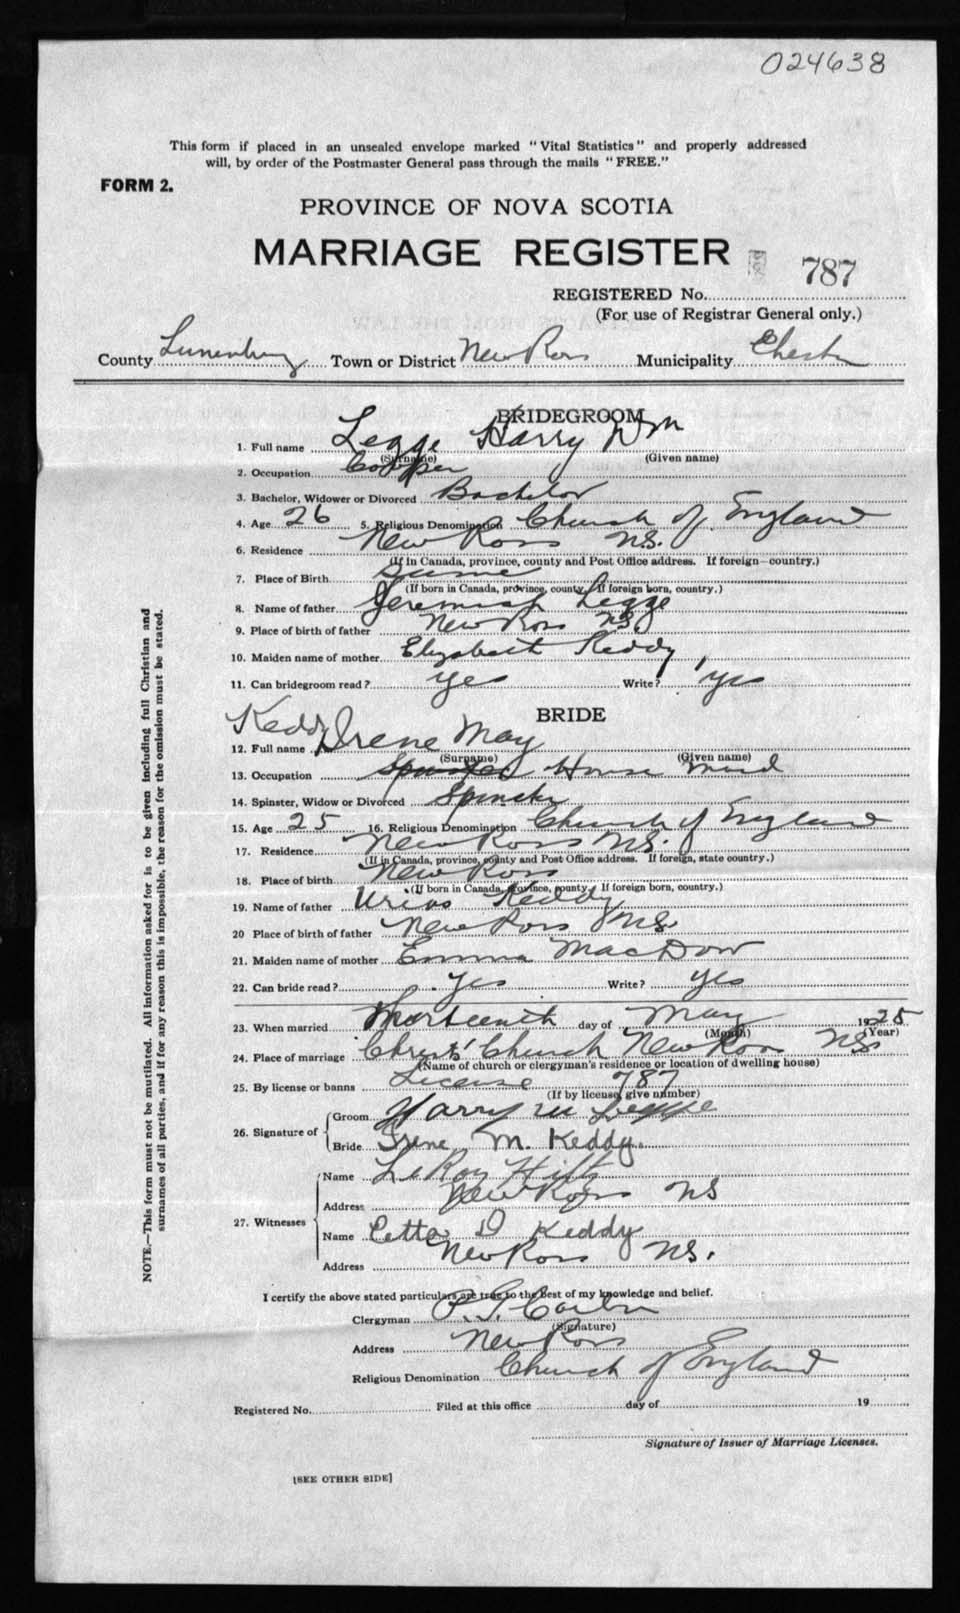 024638
This form if placed in an unsealed envelope marked "Vital Statistics" and properly addressed
will, by order of the Postmaster General pass through the mails "FREE."
FORM 2.
PROVINCE OF NOVA SCOTIA
MARRIAGE REGISTER
787
REGISTERED No.
(For use of Registrar General only.)
County Lunenburg Town or District New Ross Municipality Chester
BRIDEGROOM
1. Full name Legge Harry Wm
(Surname) (Given name)
2. Occupation Cooper
3. Bachelor, Widower or Divorced Bachelor
4. Age 26 5. Religious Denomination Church of England
6. Residence New Ross N.S.
(If in Canada, province, county and Post Office address. If foreign—country.)
7. Place of Birth Same
(If born in Canada, province, county. If foreign born, country.)
8. Name of father Jeremiah Legge
9. Place of birth of father New Ross N.S.
10. Maiden name of mother Elizabeth Keddy
11. Can bridegroom read? Yes Write? Yes
BRIDE
12. Full name Keddy Irene May
(Surname) (Given name)
13. Occupation Spinster House Maid
14. Spinster, Widow or Divorced Spinster
15. Age 25 16. Religious Denomination Church of England
17. Residence New Ross N.S.
(If in Canada, province, county and Post Office address. If foreign, state country.)
18. Place of birth New Ross
(If born in Canada, province, county. If foreign born, country.)
19. Name of father Urias Keddy
20 Place of birth of father New Ross N.S.
21. Maiden name of mother Emma MacDow
22. Can bride read? Yes Write? yes
23. When married day of May 1925
(Month) (Year)
24. Place of marriage Christ's Church New Ross N.S.
(Name of church or clergyman's residence or location of dwelling house)
25. By license or banns License 787
(If by license, give number)
26. Signature of Groom Harry W Legge
Bride Irene M. Keddy.
27. Witnesses Name LeRoy Hiltz
Address New Ross NS
Name Etta D Keddy
Address New Ross N.S.
I certify the above stated particulars are true to the best of my knowledge and belief.
Clergyman
(Signature)
Address New Ross
Religious Denomination Church of England
Registered No. Filed at this office day of 19
Signature of Issuer of Marriage Licenses.
[SEE OTHER SIDE]
NOTE.—This form must not be mutilated. All information asked for is to be given including full Christian and
surnames of all parties, and if for any reason this is impossible, the reason for the omission must be stated.